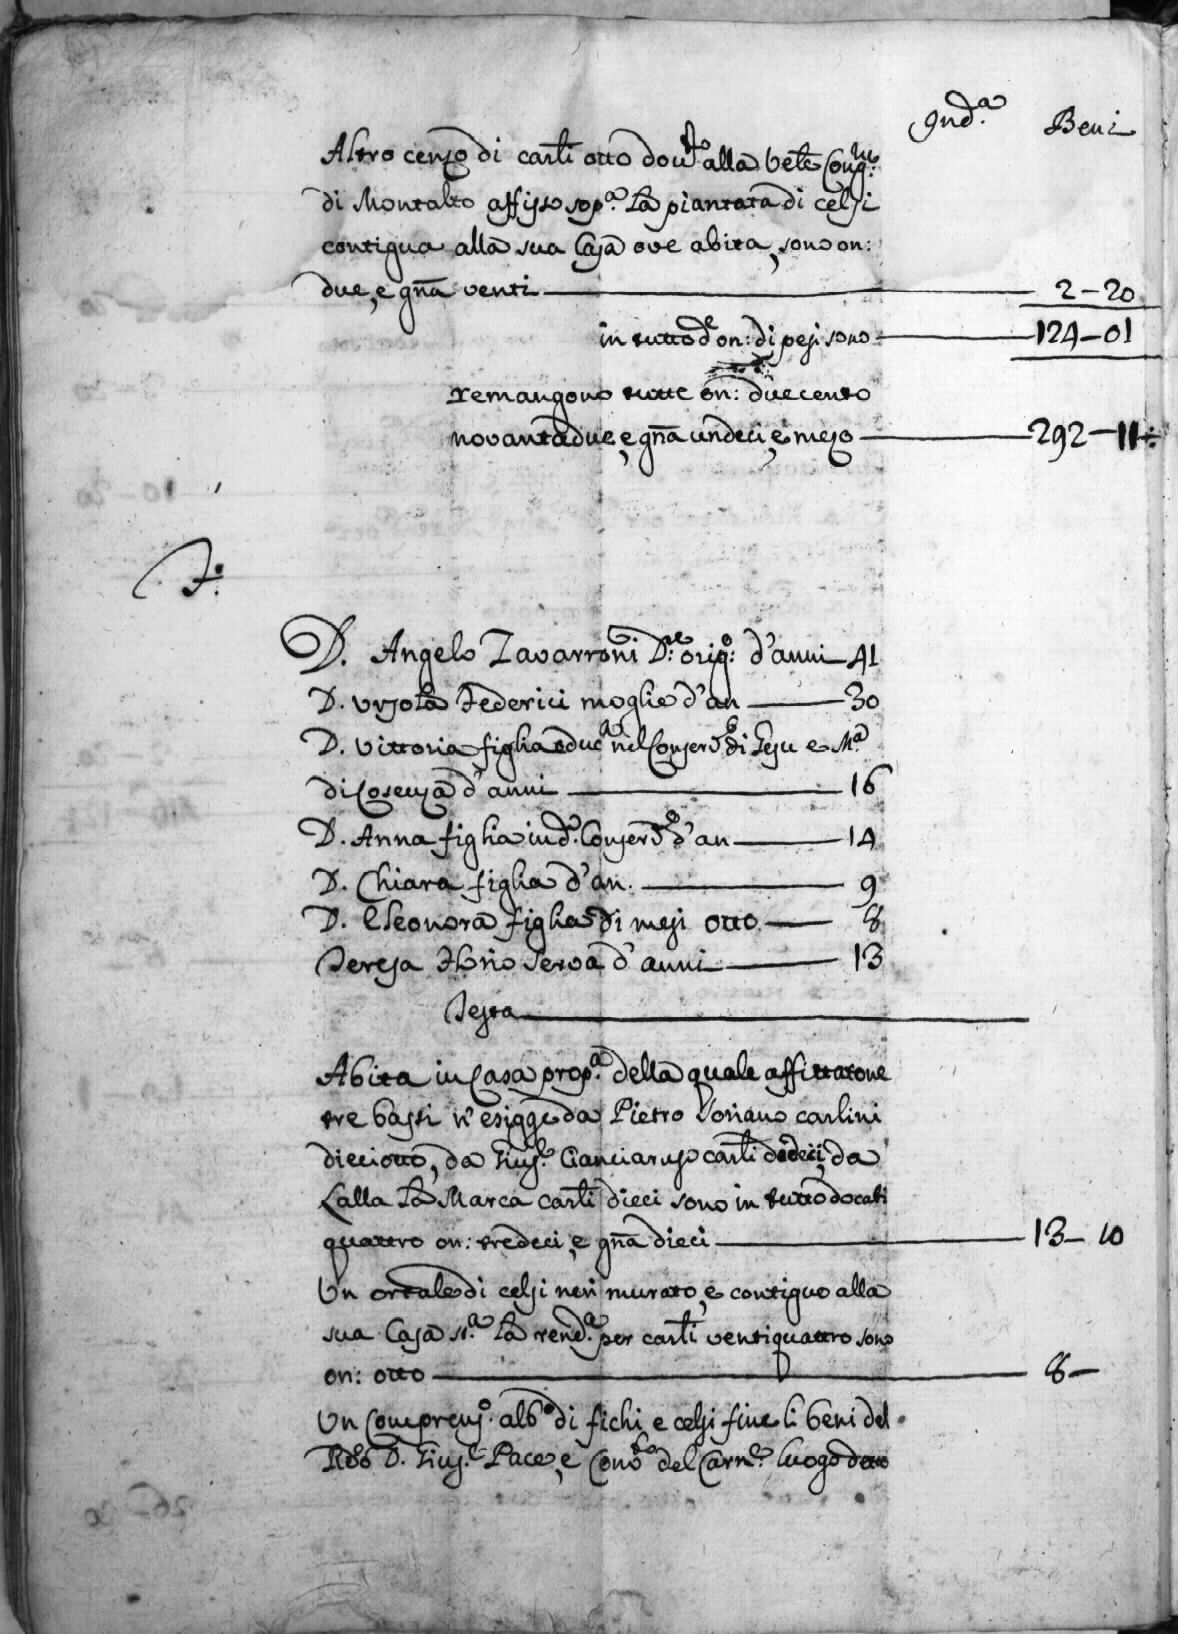 Ind.ª Beni
Altro cenzo di carli otto dovto alla Vele Cong.ne
di Montalto affisso sop.ª la piantata di celsi
contigua alla sua Casa ove abita, sono on:
due, e gna venti 2-20
in tutto de on: di pesi sono 124-01
remangono tutte on: duecento
novantadue, e gna undeci, e mezo 292-11÷
F:
D. Angelo Zavarroni D:re orig:o d'anni 41
D. Ursola Federici moglie d'an 30
D. Vittoria figlia educª nel Conserv.o di Gesu e M.ª
di Cosenza d'anni 16
D. Anna figlia in d.o Conserv.o d'an 14
D. Chiara figlia d'an. 9
D. Eleonora figlia di mesi otto 8
Teresa serva d'anni 13
Testa
Abita in Casa prop.ª della quale affittatone
tre bassi n'esigge da Pietro Soriano carlini
dieciotto, da Gius.e Cianciaruso carli dodeci, da
Lalla la Marca carli dieci sono in tutto docati
quattro on: tredeci, e gna dieci 13-10
Un ortale di celsi neri murato, e contiguo alla
sua Casa st.ª la rend.ª per carli ventiquattro sono
on: otto 8-
Un comprens.o alb.o di fichi e celsi fine li beni del
Rdo D. Gius.e Pace, e Conv.to del Carm.e luogo detto